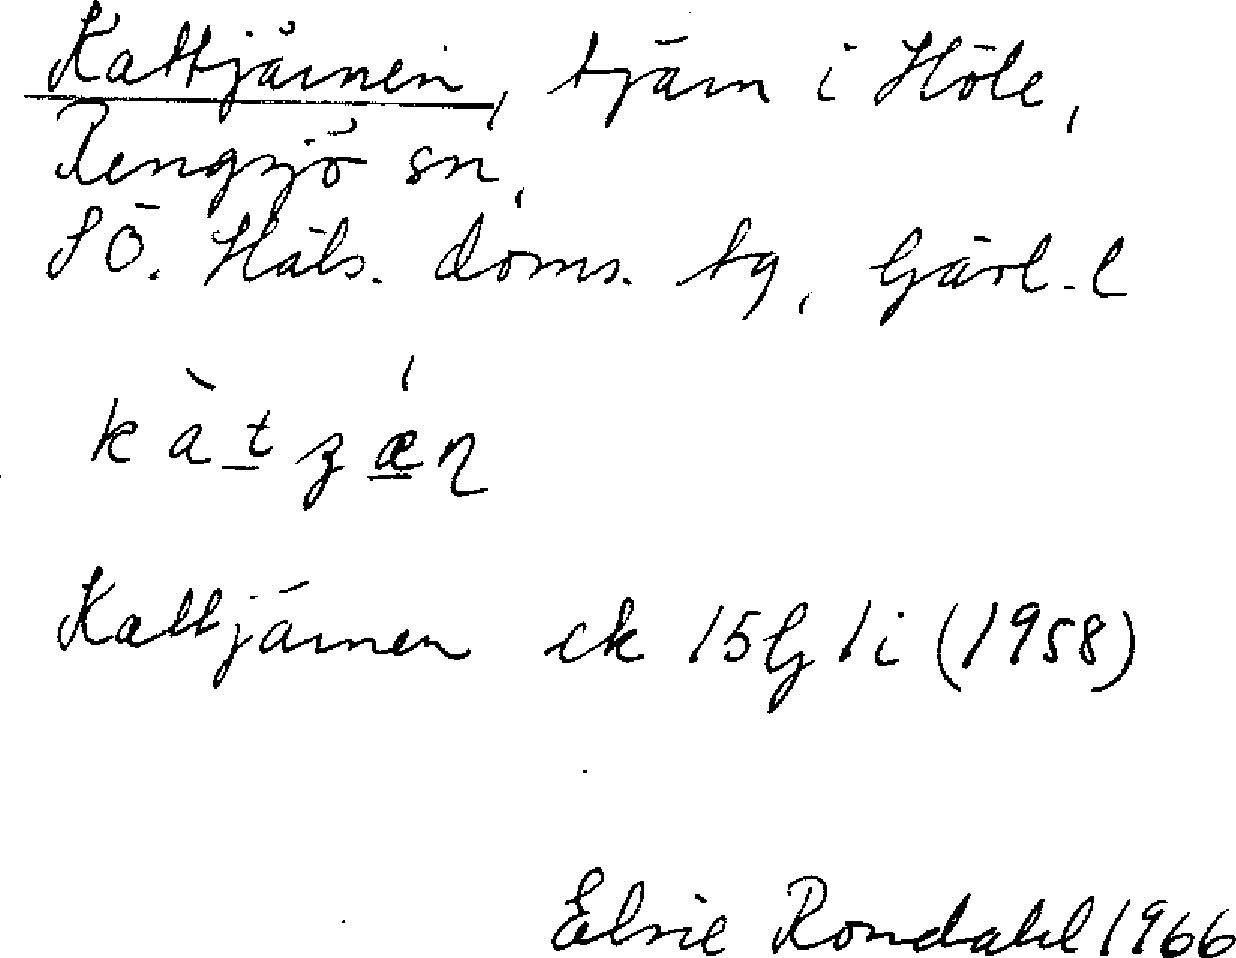 Kattjärnen, tjärn i Höle,
Rengsjö sn,
SÖ. Häls. doms. tg, Gävl. l
kàtzǽn
Kattjärnen ek 15G 1i (1958)
Elsie Rondahl 1966